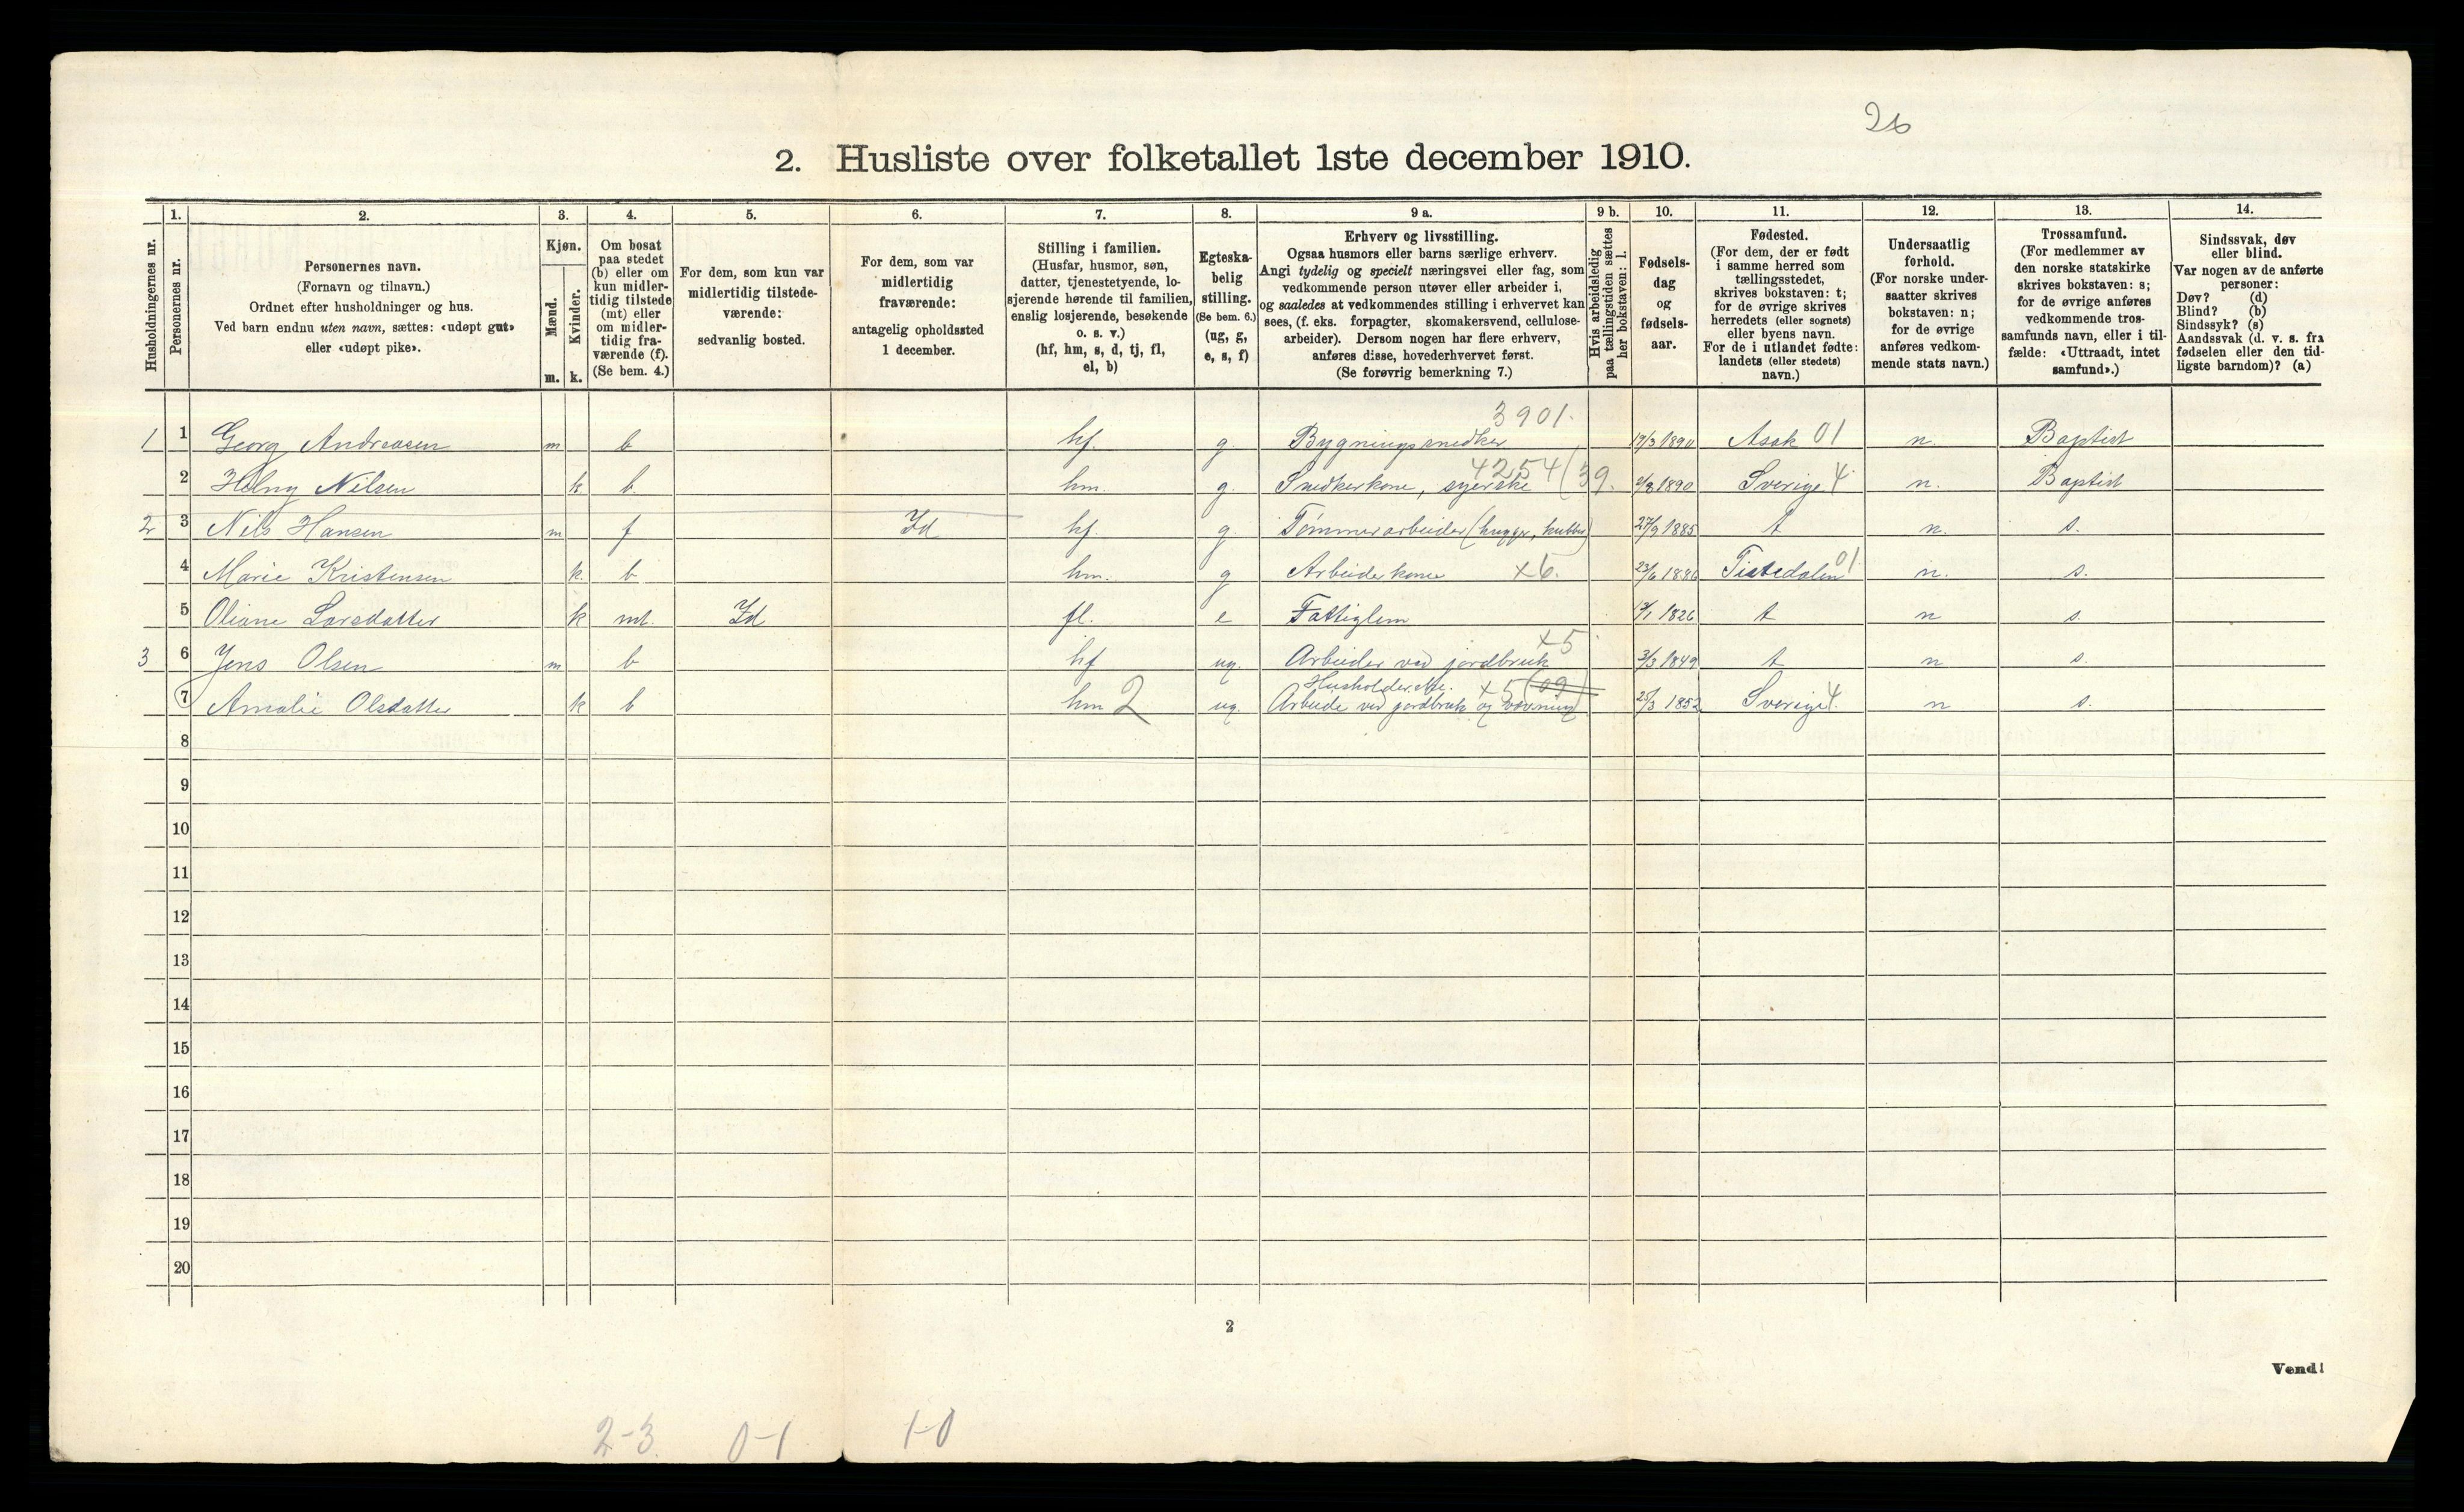 26
2. Husliste over folketallet 1ste december 1910.
1. 2. 3. 4. 5. 6. 7. 8. 9 a. 9 b. 10. 11. 12. 13. 14.
Husholdningernes nr.
Personernes nr.
Personernes navn.
(Fornavn og tilnavn.)
Ordnet efter husholdninger og hus.
Ved barn endnu uten navn, sættes: «udøpt gut»
eller «udøpt pike».
Kjøn.
Mænd.
Kvinder.
m. k.
Om bosat
paa stedet
(b) eller om
kun midler-
tidig tilstede
(mt) eller
om midler-
tidig fra-
værende (f).
(Se bem. 4.)
For dem, som kun var
midlertidig tilstede-
værende:
sedvanlig bosted.
For dem, som var
midlertidig
fraværende:
antagelig opholdssted
1 december.
Stilling i familien.
(Husfar, husmor, søn,
datter, tjenestetyende, lo-
sjerende hørende til familien,
enslig losjerende, besøkende
o. s. v.)
(hf, hm, s, d, tj, fl,
el, b)
Egteska-
belig
stilling.
(Se bem. 6.)
(ug, g,
e, s, f)
Erhverv og livsstilling.
Ogsaa husmors eller barns særlige erhverv.
Angi tydelig og specielt næringsvei eller fag, som
vedkommende person utøver eller arbeider i,
og saaledes at vedkommendes stilling i erhvervet kan
sees, (f. eks. forpagter, skomakersvend, cellulose-
arbeider). Dersom nogen har flere erhverv,
anføres disse, hovederhvervet først.
(Se forøvrig bemerkning 7.)
Hvis arbeidsledig
paa tællingstiden sættes
her bokstaven: l.
Fødsels-
dag
og
fødsels-
aar.
Fødested.
(For dem, der er født
i samme herred som
tællingsstedet,
skrives bokstaven: t;
for de øvrige skrives
herredets (eller sognets)
eller byens navn.
For de i utlandet fødte:
landets (eller stedets)
navn.)
Undersaatlig
forhold.
(For norske under-
saatter skrives
bokstaven: n;
for de øvrige
anføres vedkom-
mende stats navn.)
Trossamfund.
(For medlemmer av
den norske statskirke
skrives bokstaven: s;
for de øvrige anføres
vedkommende tros-
samfunds navn, eller i til-
fælde: «Uttraadt, intet
samfund».)
Sindssvak, døv
eller blind.
Var nogen av de anførte
personer:
Døv? (d)
Blind? (b)
Sindssyk? (s)
Aandssvak (d. v. s. fra
fødselen eller den tid-
ligste barndom)? (a)
3901.
1 1 Georg Andreasen m b hf. g. Bygningssnedker 1890 Asak 01 n. Baptist
4254 (39.
2 Nilsen k b. hm. g. Snedkerkone, syerske 1890 Sverige 4 n. Baptist
2 3 Nils Hansen m f Id hf. g. Tømmerarbeider (hugger, kubber) 27/9 1885 t n. s.
4 Marie Kristensen k. b. hm. g Arbeiderkone x6. 23/6 Tistedalen 01 n. s.
5 Oliane Larsdatter k mt. Id fl. e Fattiglem 1826 t n s.
x5
3 6 Jens Olsen m b hf ug. Arbeider ved jordbruk 3/3 1849 t n s.
Husholderske. x5 (09)
7 Amalie Olsdatter k b hm 2 ug. Arbeide ved jordbruk og vævning 25/3 1852 Sverige 4. n s.
8
9
10
11
12
13
14
15
16
17
18
19
20
2
Vend!
2-3. 0-1 1-0